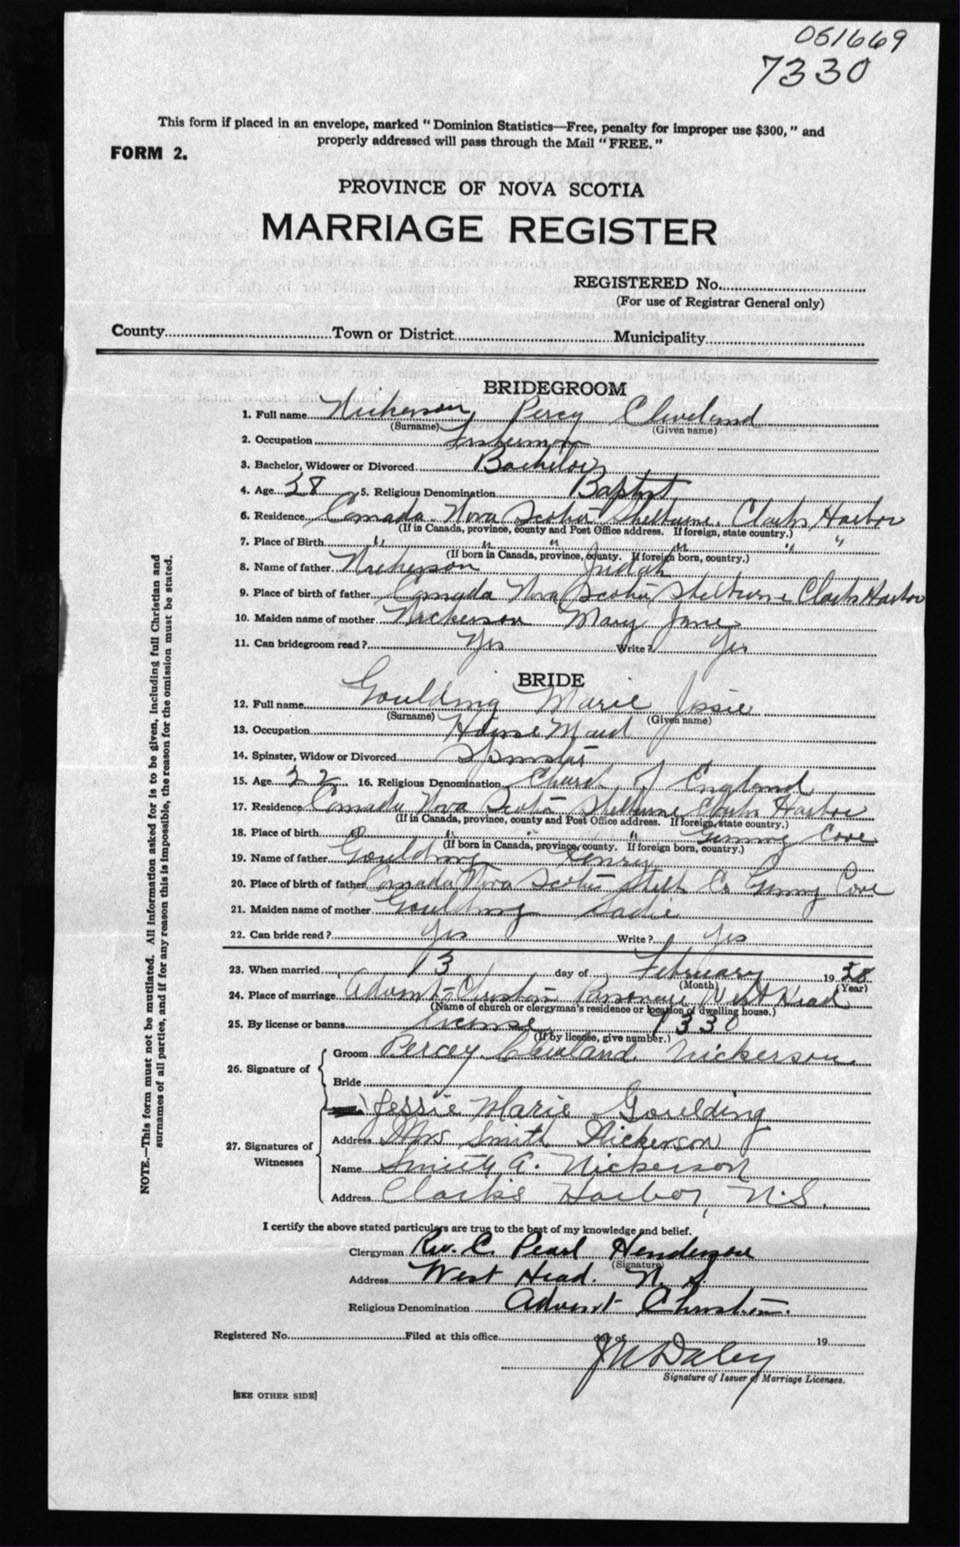 051669
7330
This form if placed in an envelope, marked "Dominion Statistics—Free, penalty for improper use $300," and
properly addressed will pass through the Mail "FREE."
FORM 2.
PROVINCE OF NOVA SCOTIA
MARRIAGE REGISTER
REGISTERED No.
(For use of Registrar General only)
County Town or District Municipality
BRIDEGROOM
1. Full name Nickerson Percy Cleveland
(Surname) (Given name)
2. Occupation Fisherman
3. Bachelor, Widower or Divorced Bachelor
4. Age 38 5. Religious Denomination Baptist
6. Residence Canada Nova Scotia Shelburne Clarks Harbor
(If in Canada, province, county and Post Office address. If foreign, state country.)
7. Place of Birth " " " " " "
(If born in Canada, province, county. If foreign born, country.)
8. Name of father Nickerson Judah
9. Place of birth of father Canada Nova Scotia Shelburne Clarks Harbor
10. Maiden name of mother Nickerson Mary Jane
11. Can bridegroom read? Yes Write? Yes
BRIDE
12. Full name Goulding Marie Jssie
(Surname) (Given name)
13. Occupation House Maid
14. Spinster, Widow or Divorced Spinster
15. Age 32 16. Religious Denomination Church of England
17. Residence Canada Nova Scotia Shelburne Clarks Harbor
(If in Canada, province, county and Post Office address. If foreign, state country.)
18. Place of birth " " " " Gunning Cove
(If born in Canada, province, county. If foreign born, country.)
19. Name of father Goulding Henry
20. Place of birth of father Canada Nova Scotia Shelb Co Gunning Cove
21. Maiden name of mother Goulding Sadie
22. Can bride read? Yes Write? Yes
23. When married 13 day of February 1938
(Month) (Year)
24. Place of marriage Advent Christian Parsonage West Head
(Name of church or clergyman's residence or location of dwelling house.)
25. By license or banns license 7330
(If by license, give number.)
26. Signature of
Groom Percey Cleveland Nickerson.
Bride
Jessie Marie Goulding
27. Signatures of Witnesses
Address Mrs Smith Nickerson
Name Smith A. Nickerson
Address Clark's Harbor, N.S.
I certify the above stated particulars are true to the best of my knowledge and belief.
Clergyman Rev. C. Pearl Henderson
(Signature)
Address West Head. N. S.
Religious Denomination Advent Christian.
Registered No. Filed at this office day of 19
J M Daley
Signature of Issuer of Marriage Licenses.
[SEE OTHER SIDE]
NOTE.—This form must not be mutilated. All information asked for is to be given, including full Christian and
surnames of all parties, and if for any reason this is impossible, the reason for the omission must be stated.